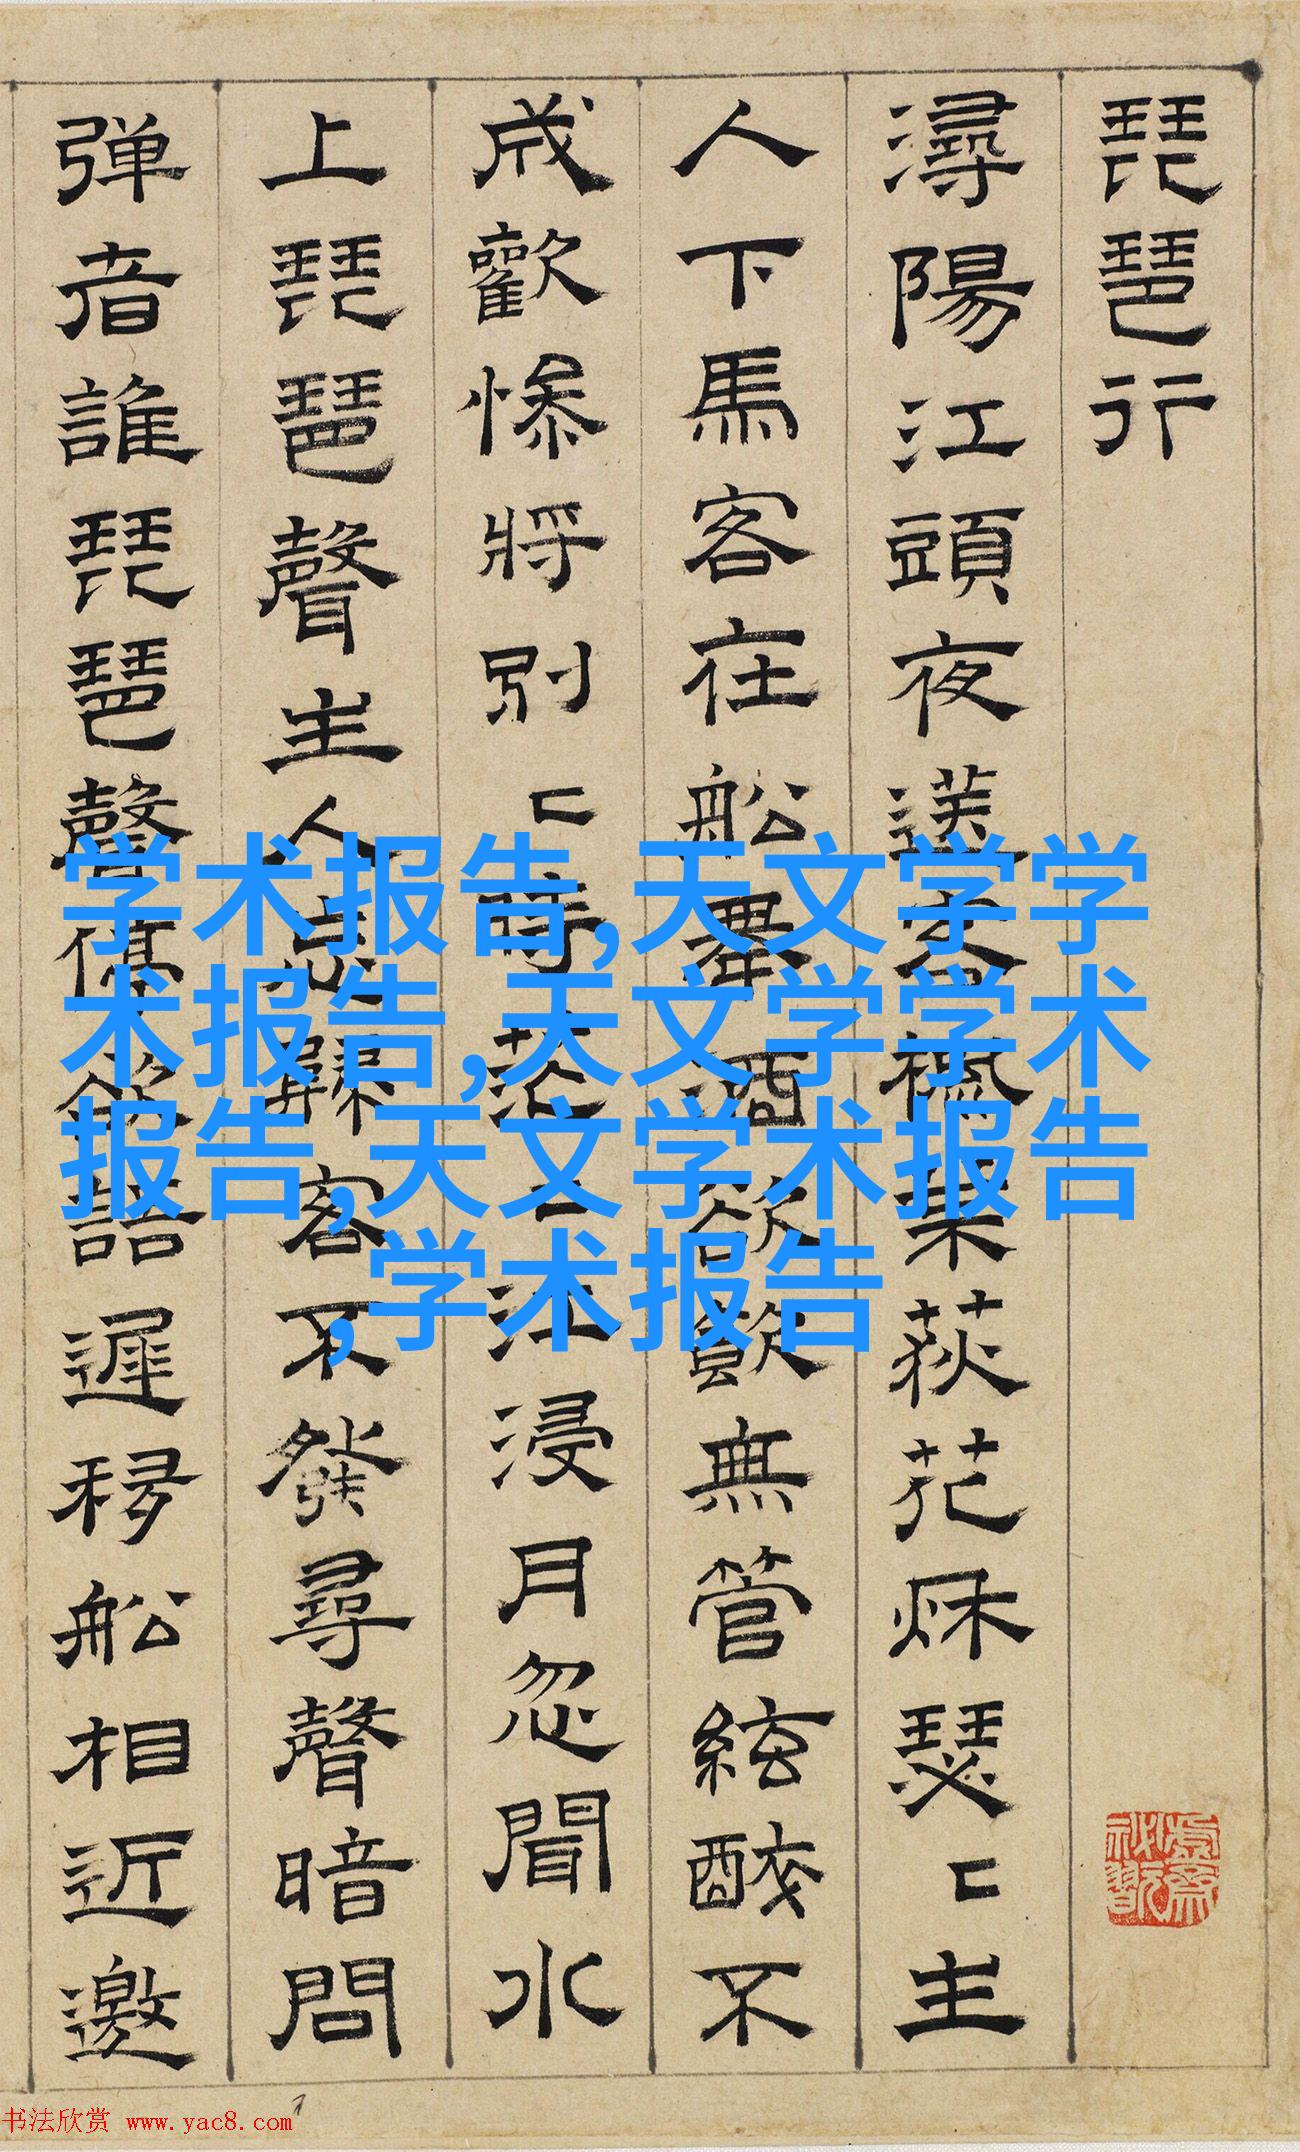 琵琶行
潯陽江頭夜送客楓葉荻花秌瑟〻主
人下馬客在船舉酒欲飲無管絃醉不
成歡慘將別〻時茫〻江浸月忽聞水
上琵琶聲主人忘歸客不發尋聲暗問
弹者誰琵琶聲停欲語遲移船相近邀
学术报告,天文学学
术报告,天文学学术
报告,天文学术报告
,学术报告
书法欣赏 www.yac8.com